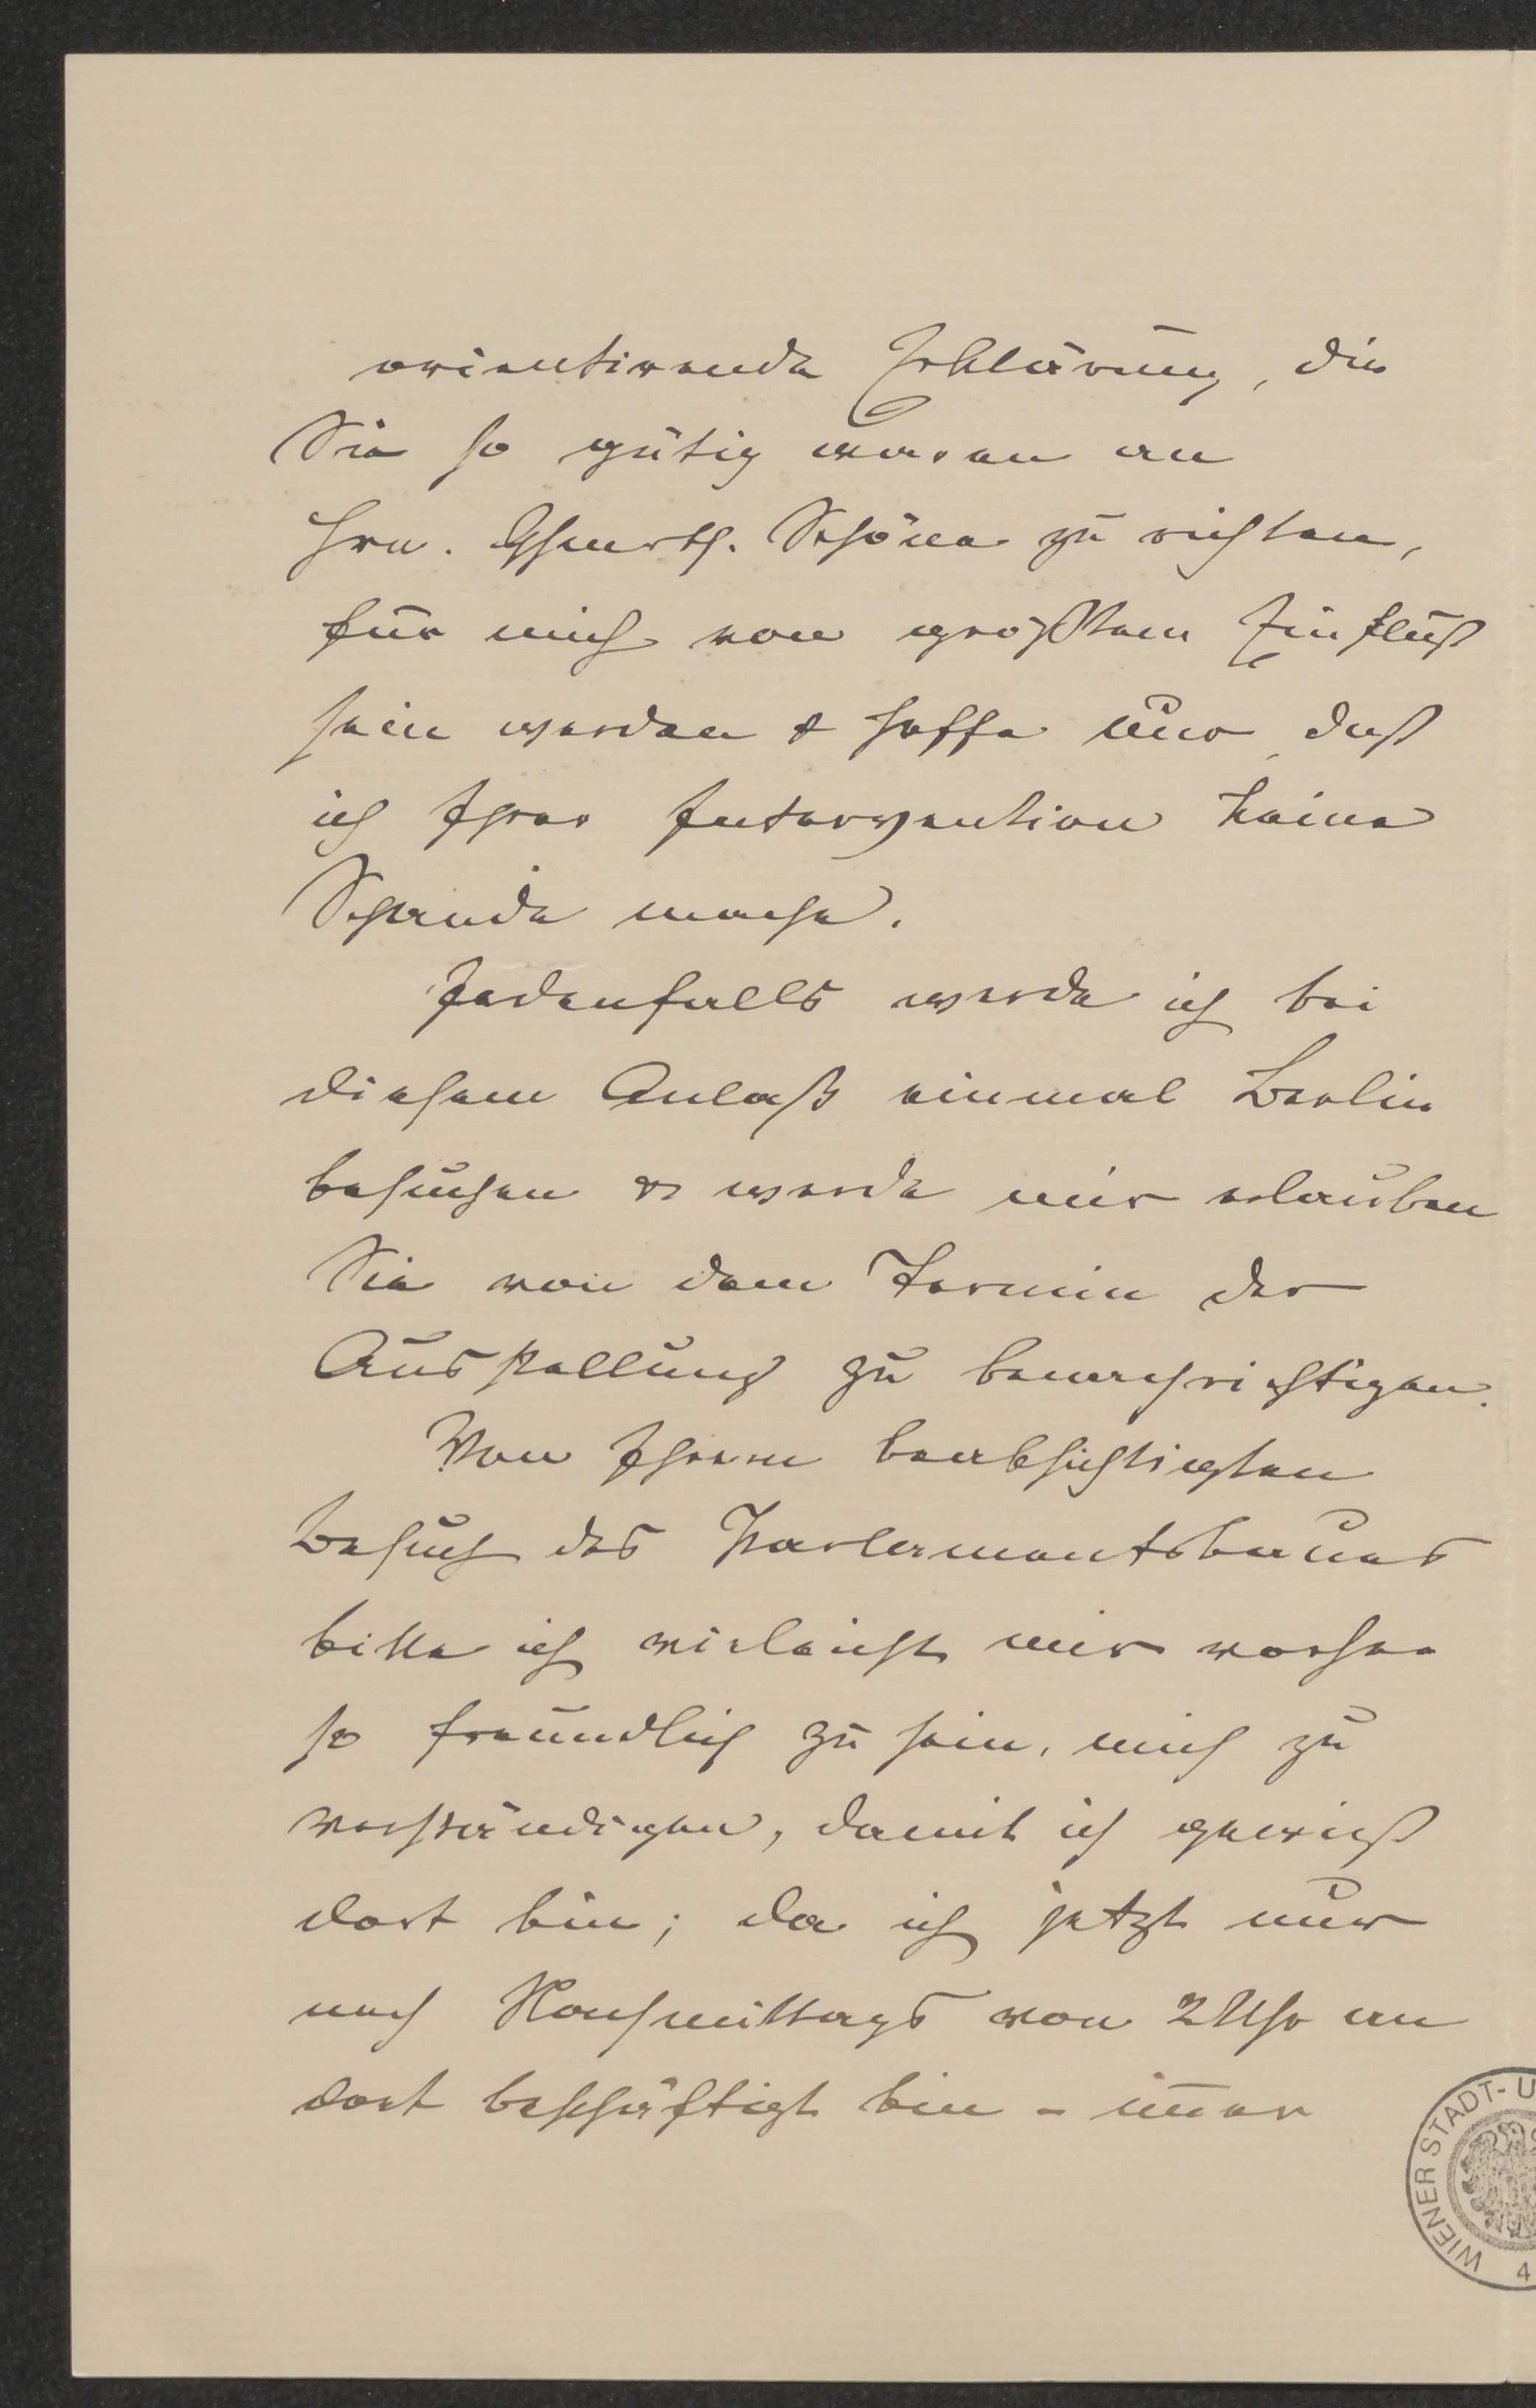 orientirende Erklärung, die
Sie so gütig waren an
Hrn. Ghmrth. Schöne zu richten,
für mich von größtem Einfluß
sein werden & hoffe nur, daß
ich Ihrer Intervention keine
Schande mache.
Jedenfalls werde ich bei
diesem Anlaß einmal Berlin
besuchen & werde mir erlauben
Sie von dem Termin der
Ausstellung zu benachrichtigen.
Von Ihrem beabsichtigten
Besuch des Parlamentsbaues
bitte ich vieleicht mir vorher
so freundlich zu sein, mich zu
verständigen, damit ich gewiß
dort bin; da ich jetzt nur
noch Nachmittags von 2 Uhr an
dort beschäftigt bin – im̅er
WIENER STADT- U
4